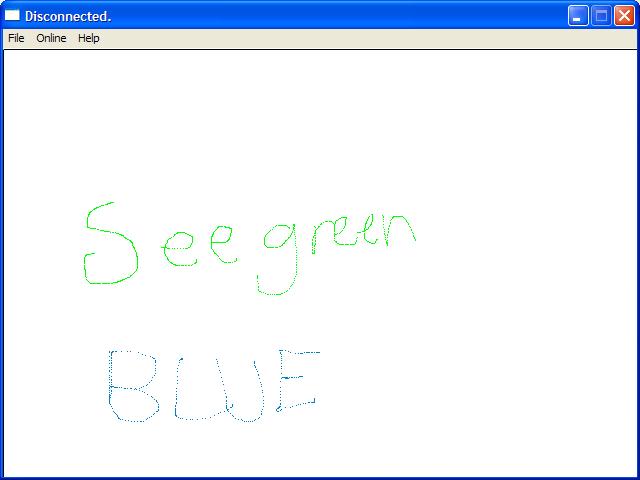 Disconnected.
File Online Help
See green
BLUE